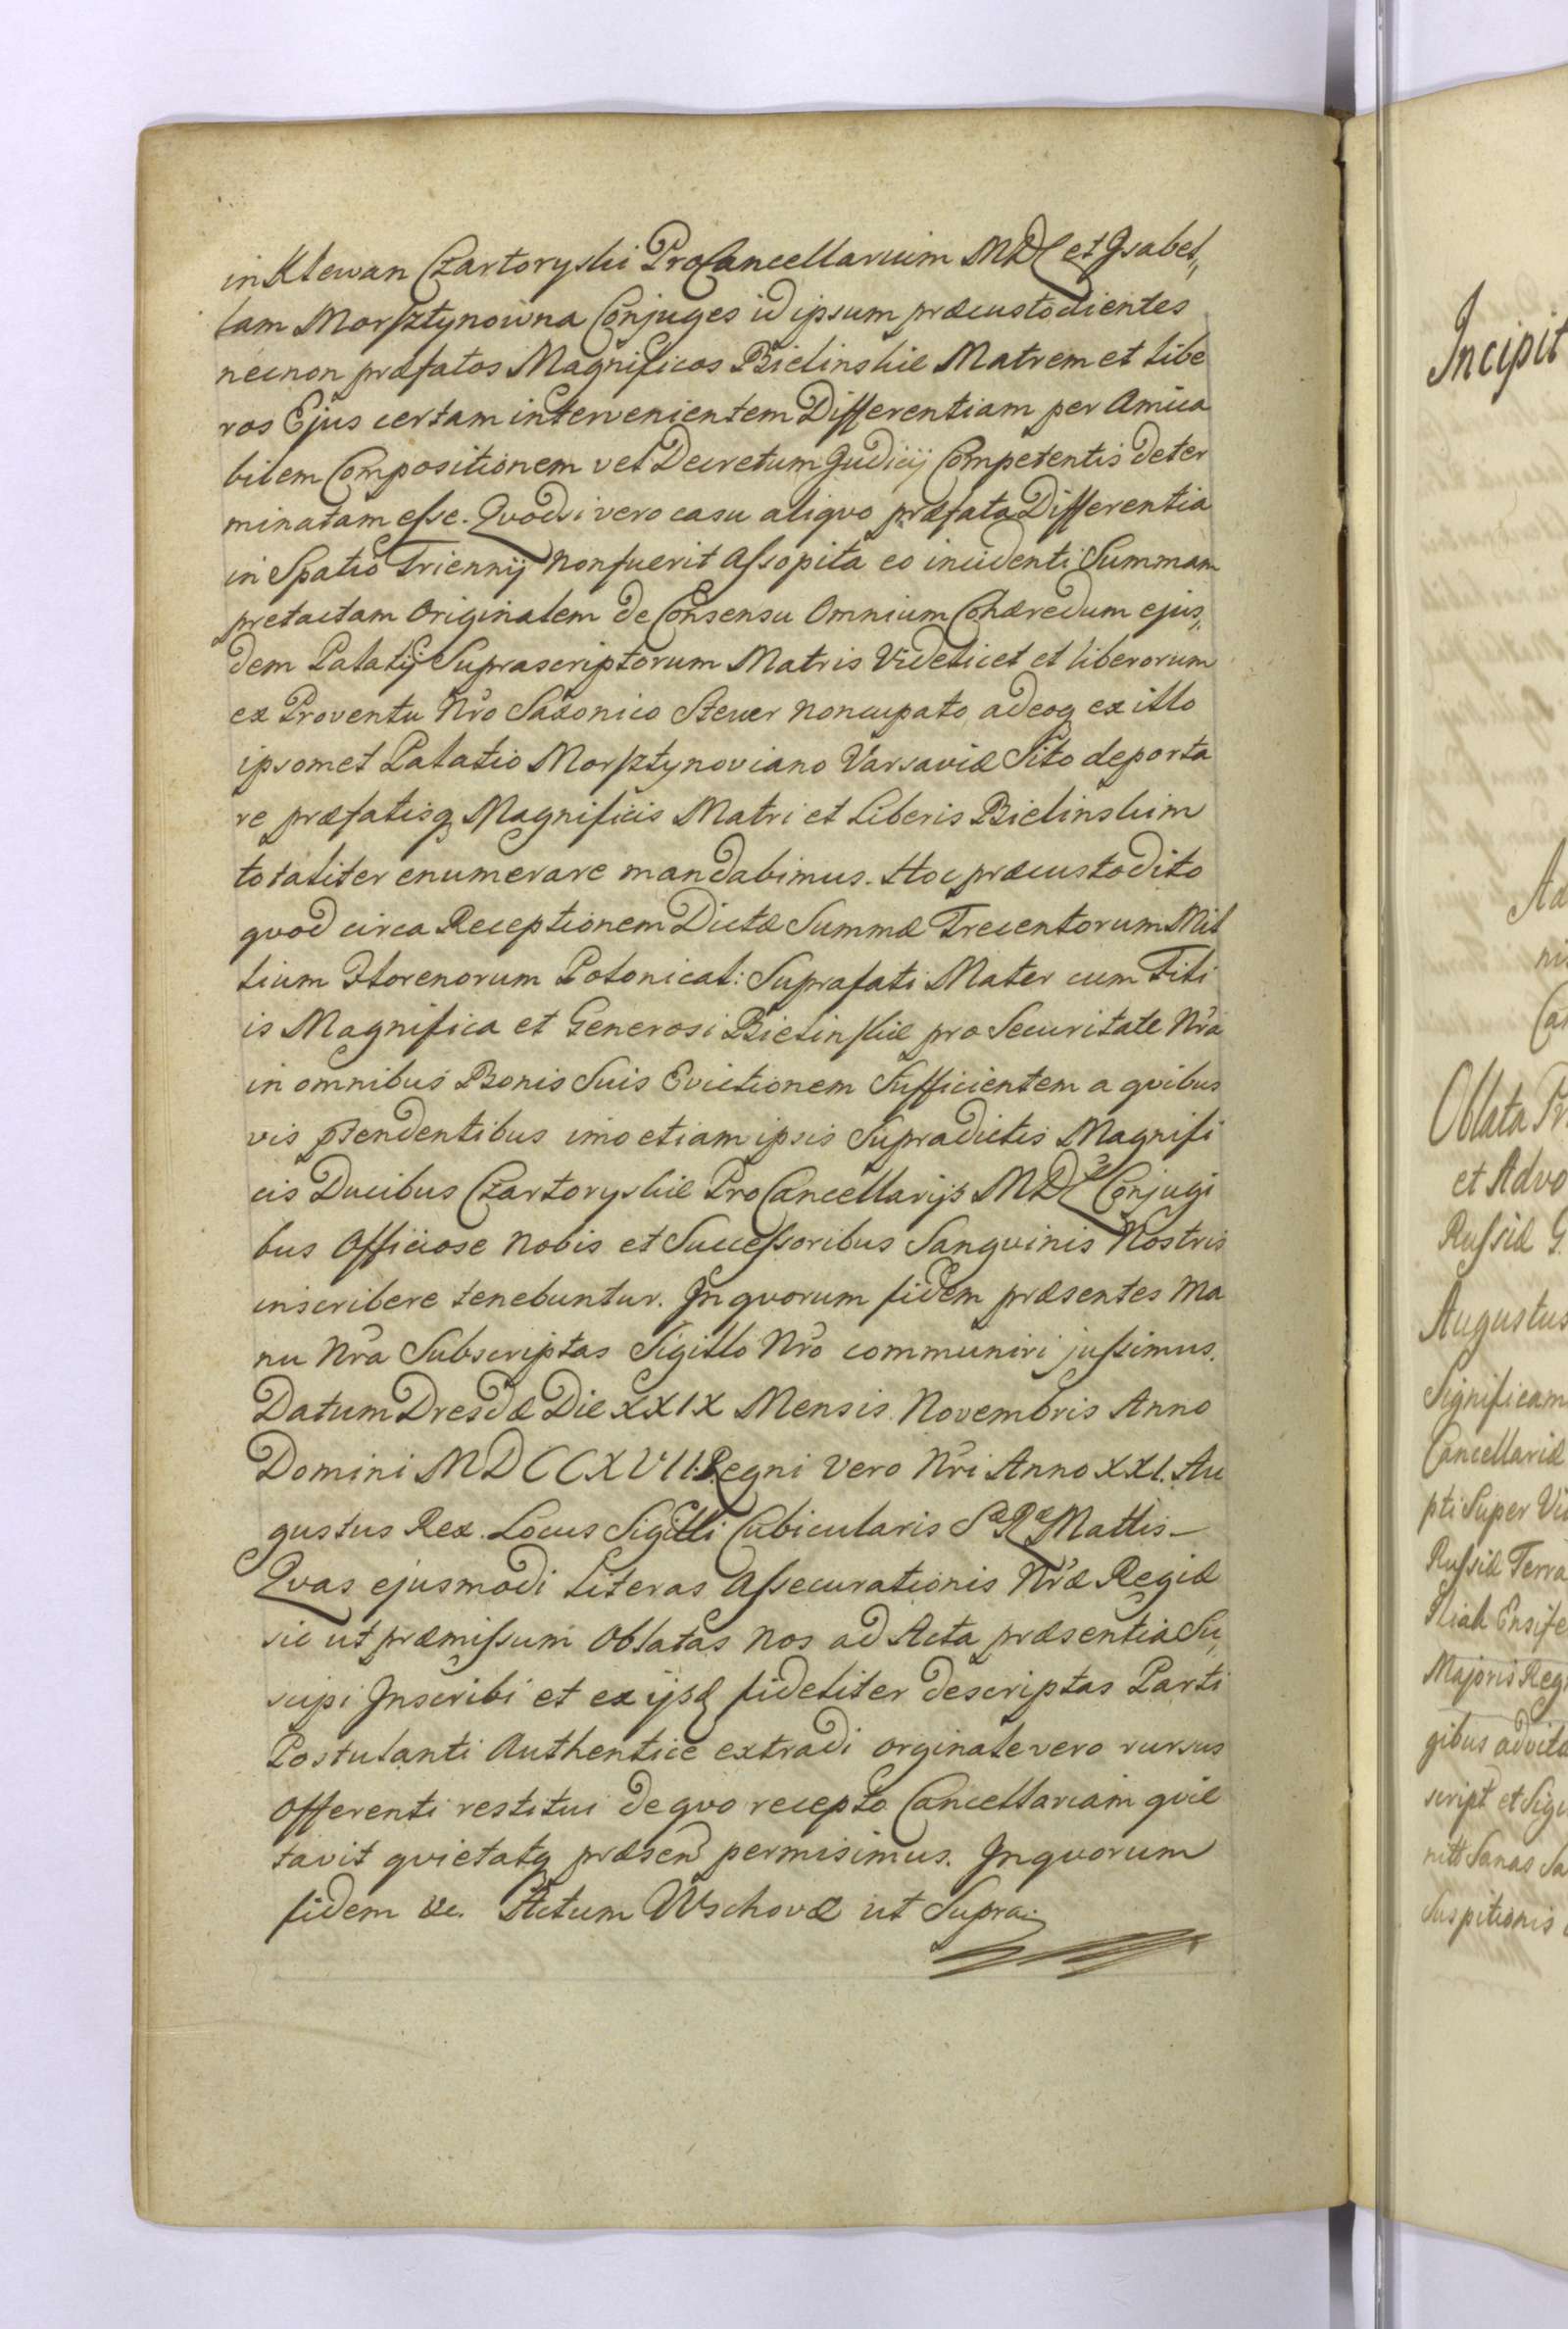 in Klewan Czartoryski ProCancellarium MDL et Jsabel„
lam Morsztynowna Conjuges id ipsum præcustodientes
necnon præfatos Magnificos Bielinskie Matrem et Libe
ros Ejus certam intervenientem Differentiam per Amica
bilem Compositionem vel Decretum Judicij Competentis deter
minatam esse. Qvodsi vero casu aliqvo præfata Differentia
in Spatio Triennij non fuerit Assopita eo incidenti Summam
pretactam Originalem de Consensu Omnium Cohæredum ejus„
dem Palatij Suprascriptorum Matris Videlicet et liberorum
ex Proventu Nr̃o Saxonico Steuer noncupato adeoq ex illo
ipsomet Palatio Morsztynoviano Varsaviæ Sito deporta
re præfatisq Magnificis Matri et Liberis Bielinskim
totaliter enumerare mandabimus. Hoc præcustodito
qvod circa Receptionem Dictæ Summæ Trecentorum Mil
lium Florenorum Polonical: Suprafati Mater cum Fili
is Magnifica et Generosi Bielinskie pro Securitate Nr̃a
in omnibus Bonis Suis Evictionem Sufficientem a qvibus
vis pendentibus imo etiam ipsis Supradictis Magnifi
cis Ducibus Czartoryskie ProCancellarijs MDL Conjugi
bus Officiose nobis et Successoribus Sangvinis Nostris
inscribere tenebuntur. Jn qvorum fidem præsentes Ma
nu Nr̃a Subscriptas Sigillo Nr̃o communiri jussimus.
Datum Dresdæ Die XXIX Mensis Novembris Anno
Domini MDCCXVII. Regni Vero Nr̃i Anno XXI. Au
gustus Rex. Locus Sigilli Cubicularis Sæ Ræ Mattis
Qvas ejusmodi Literas Assecurationis Nr̃æ Regiæ
sic ut præmissum Oblatas Nos ad Acta præsentia Su„
scipi Jnscribi et ex ijsd fideliter descriptas Parti
Postulanti Authentice extradi orginale vero rursus
Offerenti restitui de qvo recepto Cancellariam qvie
tavit qvietatq præsen permisimus. Jn qvorum
fidem &c. Actum Wschovæ ut Supra.
Incipit
Oblata
et Advo
Russiæ G
Augustus
Significam
Cancellariæ
pti Super
Russiæ Terra
Ensife
Majoris Reg
gibus
script et Sig
Suspitionis